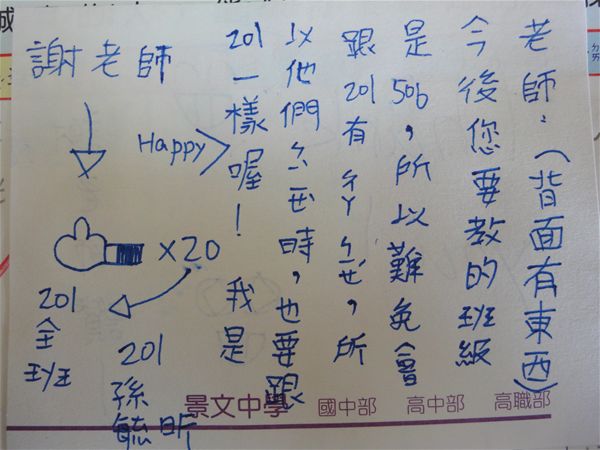 老師：（背面有東西）
今後您要教的班級
是506，所以難免會
跟201有ㄔㄚ，所
以他們時，也要跟
201一樣喔！我是
Happy
謝老師
×20
201全班
201
孫
毓昕
景文中學 國中部 高中部 高職部